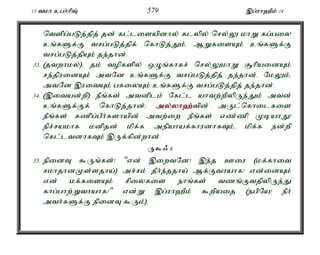 13 வமா உபர்ரிஷ் 579 இப்ராஹீம் 14
வெளிப்படுத்தித் தன் கட்டளையினால் கடலில் செல்லு மாறு கப்பலை
உங்களுக்கு வசப்படுத்திக் கொடுத்தும், ஆறுகளையும் உங்களுக்கு
வசப்படுத்தியும் தந்தான்.
33. (தவறாமல்). தம் வழிகளில் ஒழுங்காகச் செல்லுமாறு சூரியனையும்
சந்திரனையும் அவனே உங்களுக்கு வசப்படுத்தித் தந்தான். மேலும்,
அவனே இரவையும் பகலையும் உங்களுக்கு வசப்படுத்தித் தந்தான்.
34. (இவையன்றி) நீங்கள் அவனிடம் கேட்ட யாவற்றிலிருந்தும் அவன்
உங்களுக்குக் கொடுத்தான்: அல்லாஹ்வின் அருட்கொடைகளை
நீங்கள் கணிப்பீர்களாயின் அவற்றை நீங்கள் எண்ணி முடியாது!
நிச்சயமாக மனிதன் மிக்க அநியாயக்காரனாகவும், மிக்க நன்றி
கெட்டவனாகவும் இருக்கின்றான்.
ருகூஃ 6
35. நினைவு கூருங்கள்: "என் இறைவனே! இந்த ஊரை (மக்காவை
சமாதானமுள்ளதாய்) அச்சம் தீர்ந்ததாய் ஆக்குவாயாக! என்னையும்
என் மக்களையும் சிலைகளை நாங்கள் வணங்குவதிலிருந்து
காப்பாற்றுவாயாக!" என்று இப்ராஹீம் கூறியதை (நபியே! நீர்
அவர்களுக்கு நினைவு கூரும்)